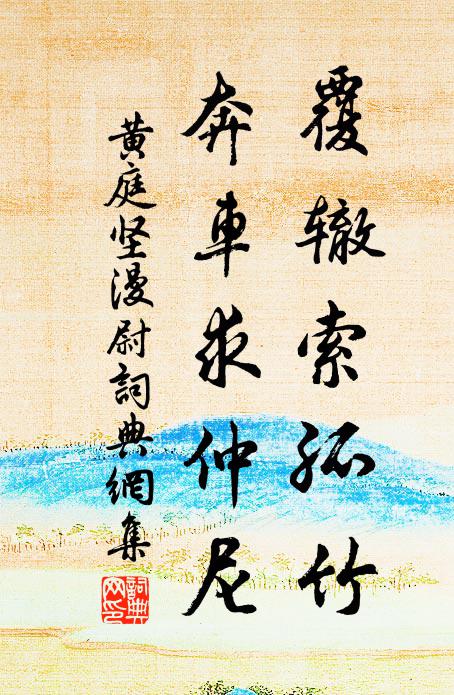 覆辙索孤竹
奔車求仲尼
黄庭坚漫尉詞典網集
詞典